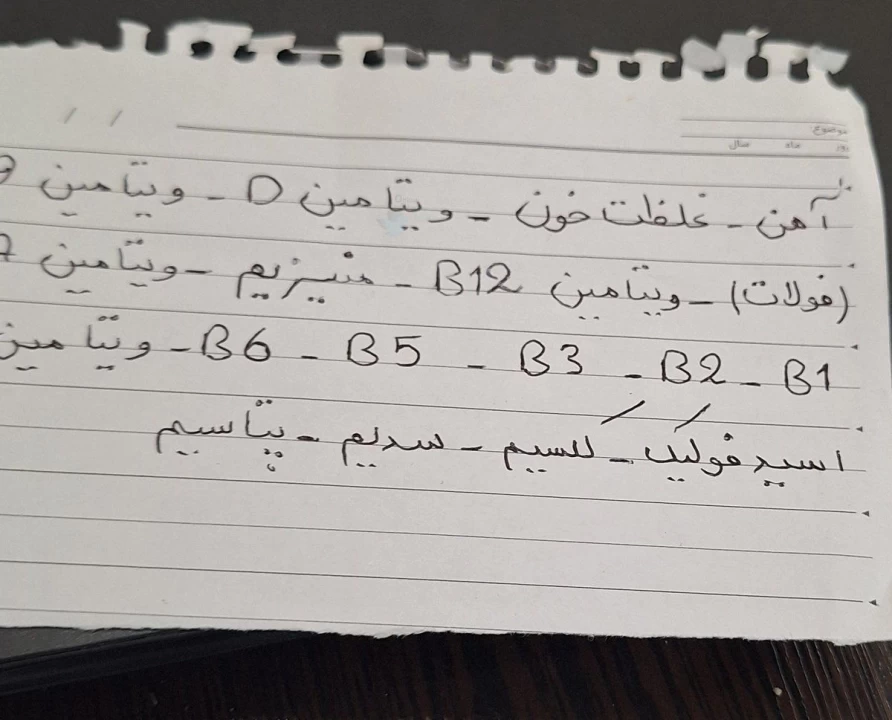 موضوع
روز ماه سال
/ /
آهن - غلظت خون - ویتامین D - ویتامین
(فولات) - ویتامین B12 - منیزیم - ویتامین
B1 - B2 - B3 - B5 - B6 - ویتامین
اسید فولیک - کلسیم - سدیم - پتاسیم